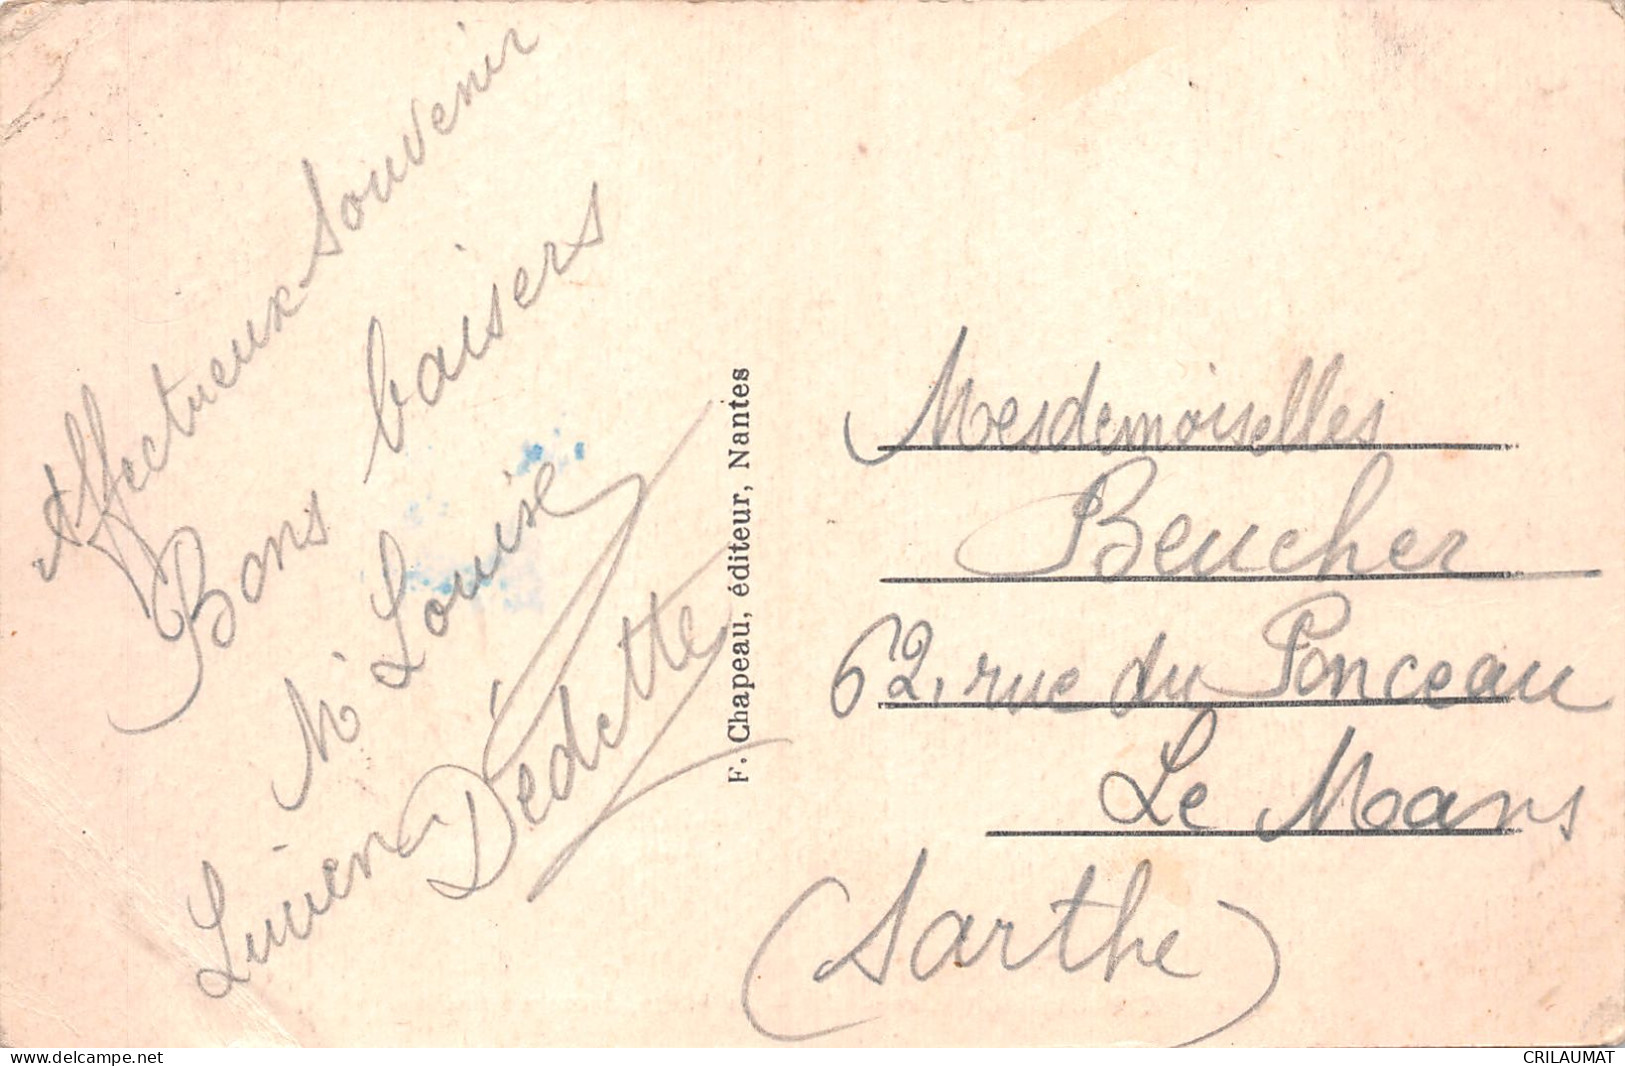 Affectueux Souvenir
Bons baisers
M Louise
Lucien Dédette
F. Chapeau, éditeur, Nantes
Mesdemoiselles
Beucher
62, rue du Ponceau
Le Mans
(Sarthe)
www.delcampe.net
CRILAUMAT